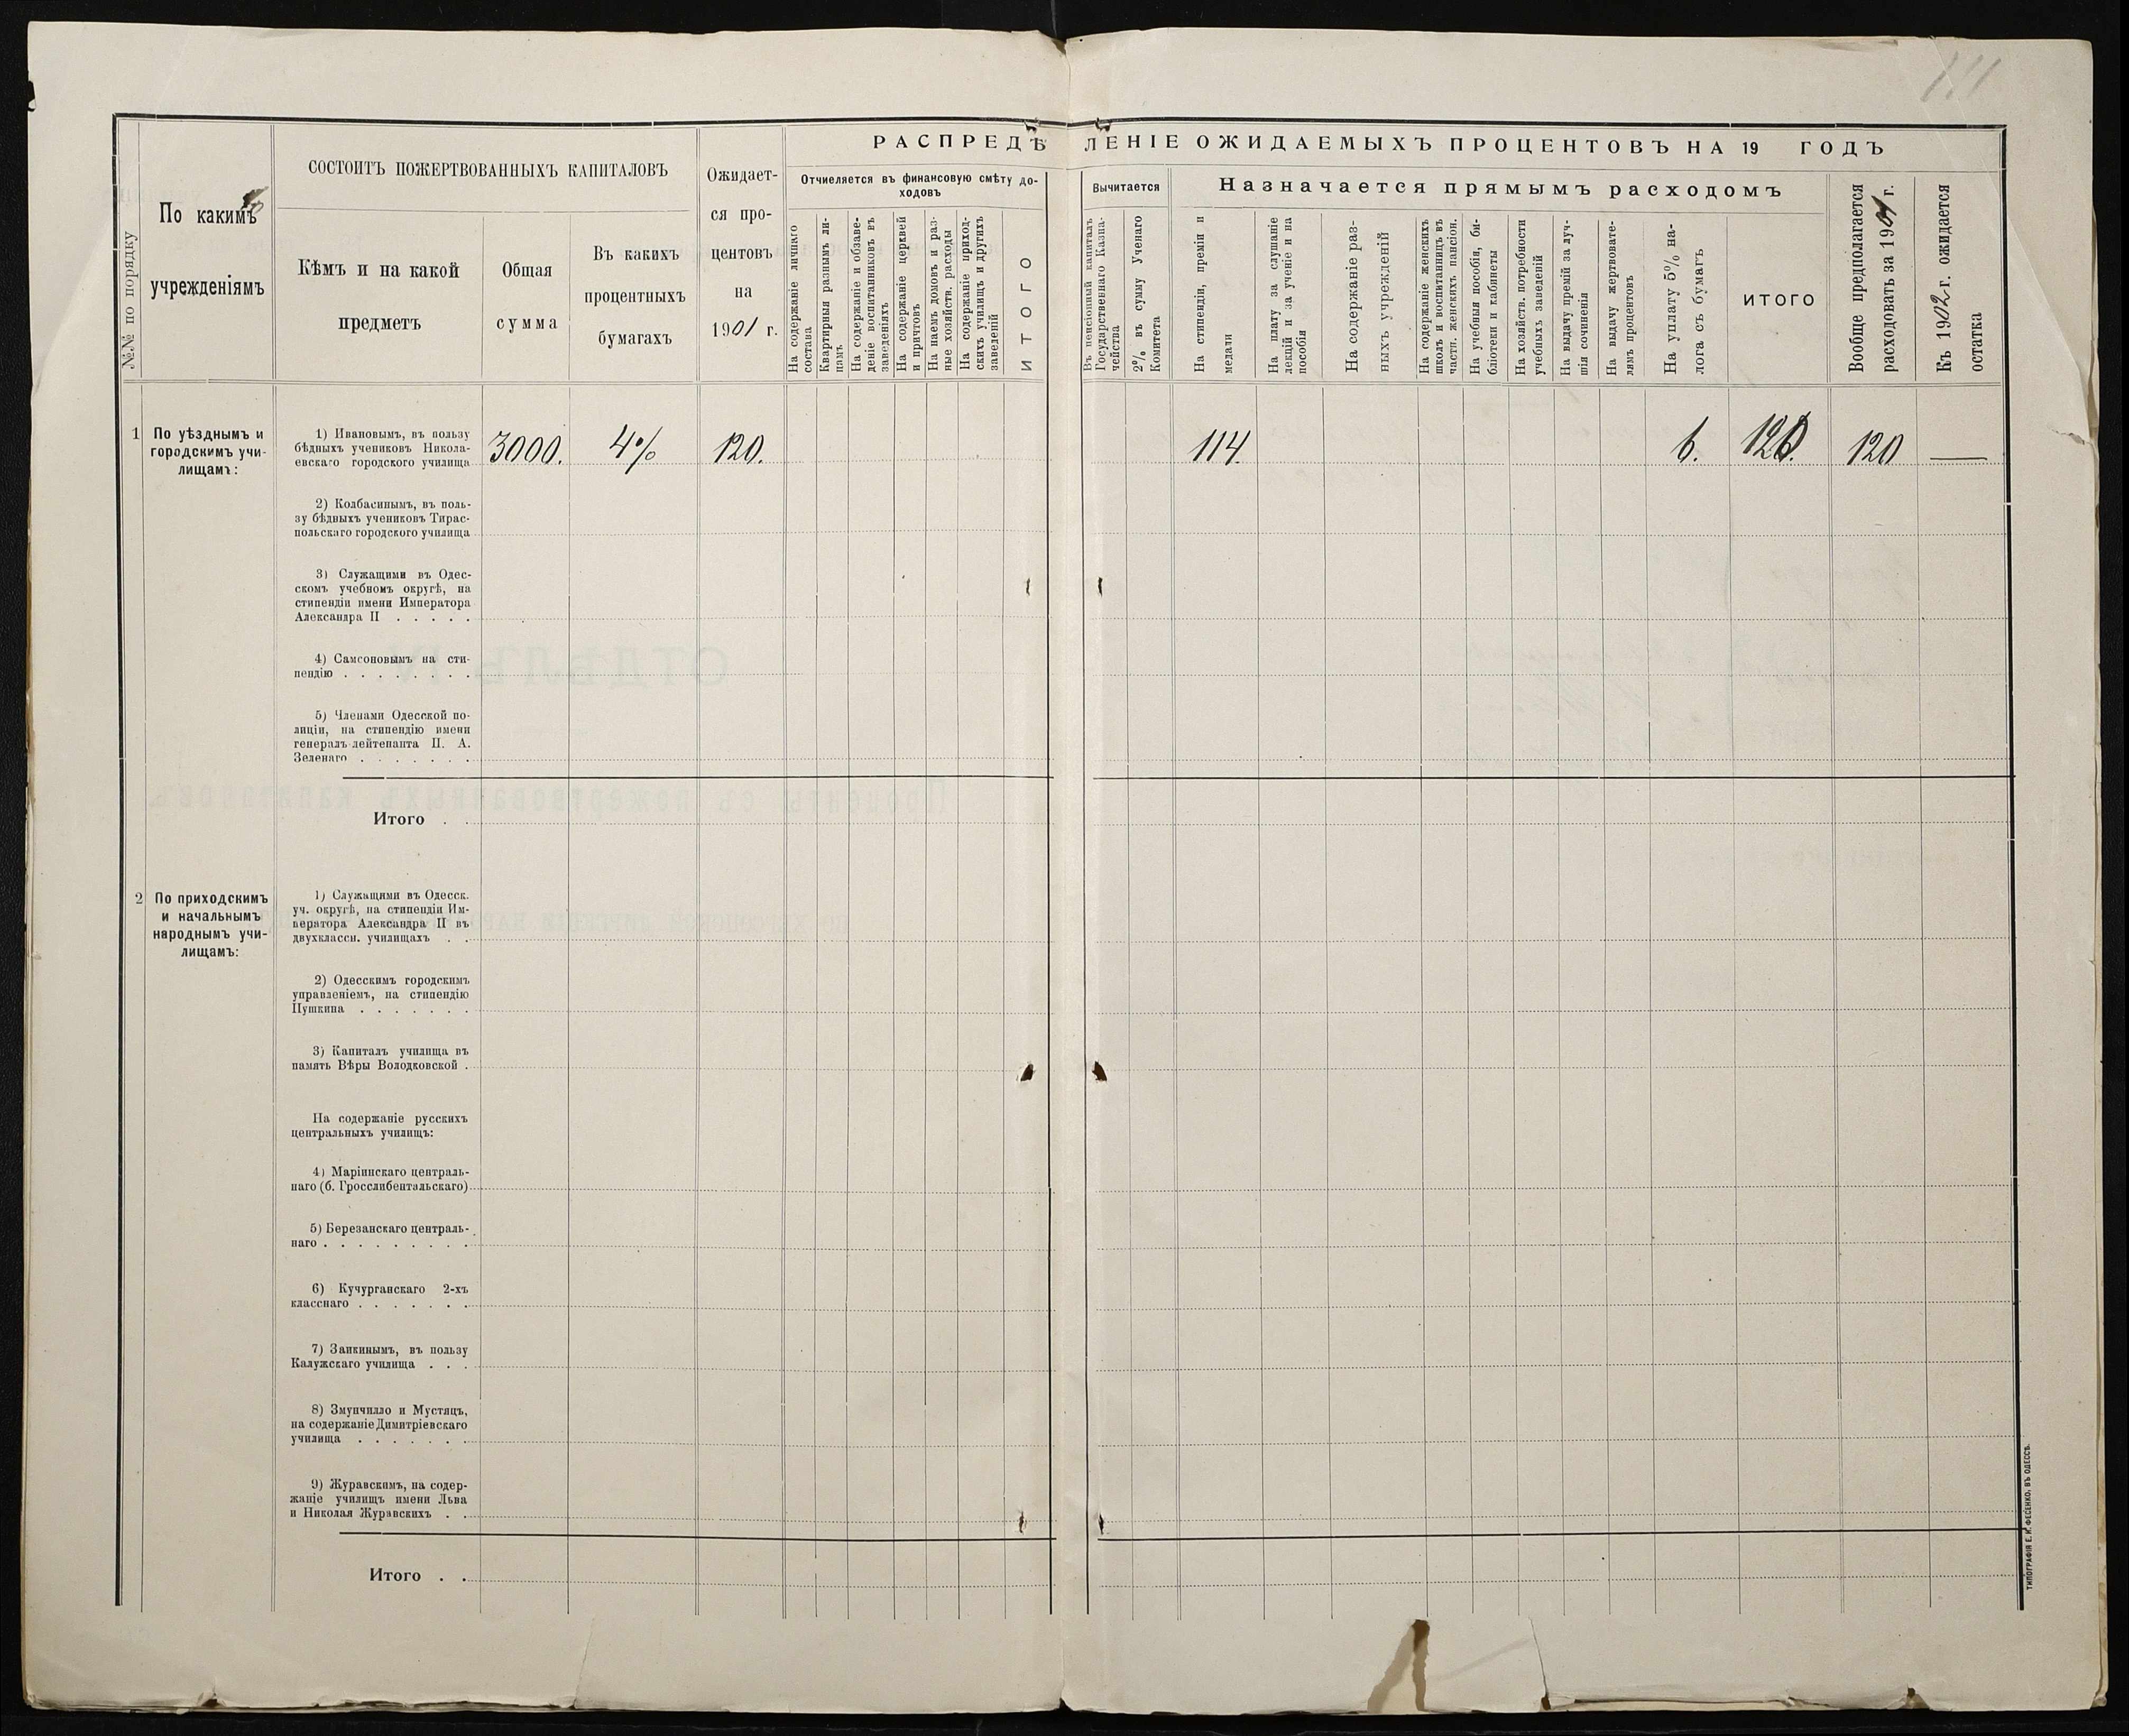 РАСПРЕДѢЛЕНІЕ ОЖИДАЕМЫХЪ ПРОЦЕНТОВЪ НА 19 ГОДЪ
№№ по порядку
По какимъ
учрежденіямъ
СОСТОИТЪ ПОЖЕРТВОВАННЫХЪ КАПИТАЛОВЪ
Кѣмъ и на какой
предметъ
Общая
сумма
Въ какихъ
процентныхъ
бумагахъ
Ожидает-
ся про-
центовъ
на
1901 г.
Отчисляется въ финансовую смѣту до-
ходовъ
На содержаніе личнаго
состава
Квартирныя разнымъ ли-
цамъ
На содержаніе и обзаве-
деніе воспитанниковъ въ
заведеніяхъ
На содержаніе церквей
и причтовъ
На наемъ домовъ и раз-
ные хозяйств. расходы
На содержаніе приход-
скихъ училищъ и другихъ
заведеній
ИТОГО
Вычитается
Въ пенсіонный капиталъ
Государственнаго Казна-
чейства
2% въ сумму Ученаго
Комитета
Назначается прямымъ расходомъ
На стипендіи, преміи и
медали
На плату за слушаніе
лекцій и за ученіе и на
пособія
На содержаніе раз-
ныхъ учрежденій
На содержаніе женскихъ
школъ и воспитанницъ въ
частн. женскихъ пансіон.
На учебныя пособія, би-
бліотеки и кабинеты
На хозяйств. потребности
учебныхъ заведеній
На выдачу премій за луч-
шія сочиненія
На выдачу жертвовате-
лямъ процентовъ
На уплату 5% на-
лога съ бумагъ
ИТОГО
Вообще предполагается
расходовать за 1901 г.
Къ 1902 г. ожидается
остатка
1
По уѣзднымъ и
городскимъ учи-
лищамъ:
1) Ивановымъ, въ пользу
бѣдныхъ учениковъ Никола-
евскаго городского училища
3000. 4% 120. 114. 6. 120. 120 —
2) Колбасинымъ, въ поль-
зу бѣдныхъ учениковъ Тирас-
польскаго городского училища
3) Служащими въ Одес-
скомъ учебномъ округѣ, на
стипендіи имени Императора
Александра II . . . . .
4) Самсоновымъ на сти-
пендію . . . . . . . .
5) Членами Одесской по-
лиціи, на стипендію имени
генералъ-лейтенанта П. А.
Зеленаго . . . . . . .
Итого . .
2
По приходскимъ
и начальнымъ
народнымъ учи-
лищамъ:
1) Служащими въ Одесск.
уч. округѣ, на стипендіи Им-
ператора Александра II въ
двухклассн. училищахъ . .
2) Одесскимъ городскимъ
управленіемъ, на стипендію
Пушкина . . . . . . .
3) Капиталъ училища въ
память Вѣры Володковской .
На содержаніе русскихъ
центральныхъ училищъ:
4) Маріинскаго централь-
наго (б. Гросслибентальскаго)
5) Березанскаго централь-
наго . . . . . . . . .
6) Кучурганскаго 2-хъ
класснаго . . . . . . .
7) Заикинымъ, въ пользу
Калужскаго училища . . .
8) Змунчилло и Мустяцъ,
на содержаніе Димитріевскаго
училища . . . . . . .
9) Журавскимъ, на содер-
жаніе училищъ имени Льва
и Николая Журавскихъ . .
Итого . .
ТИПОГРАФІЯ Е. И. ФЕСЕНКО, ВЪ ОДЕССѢ.